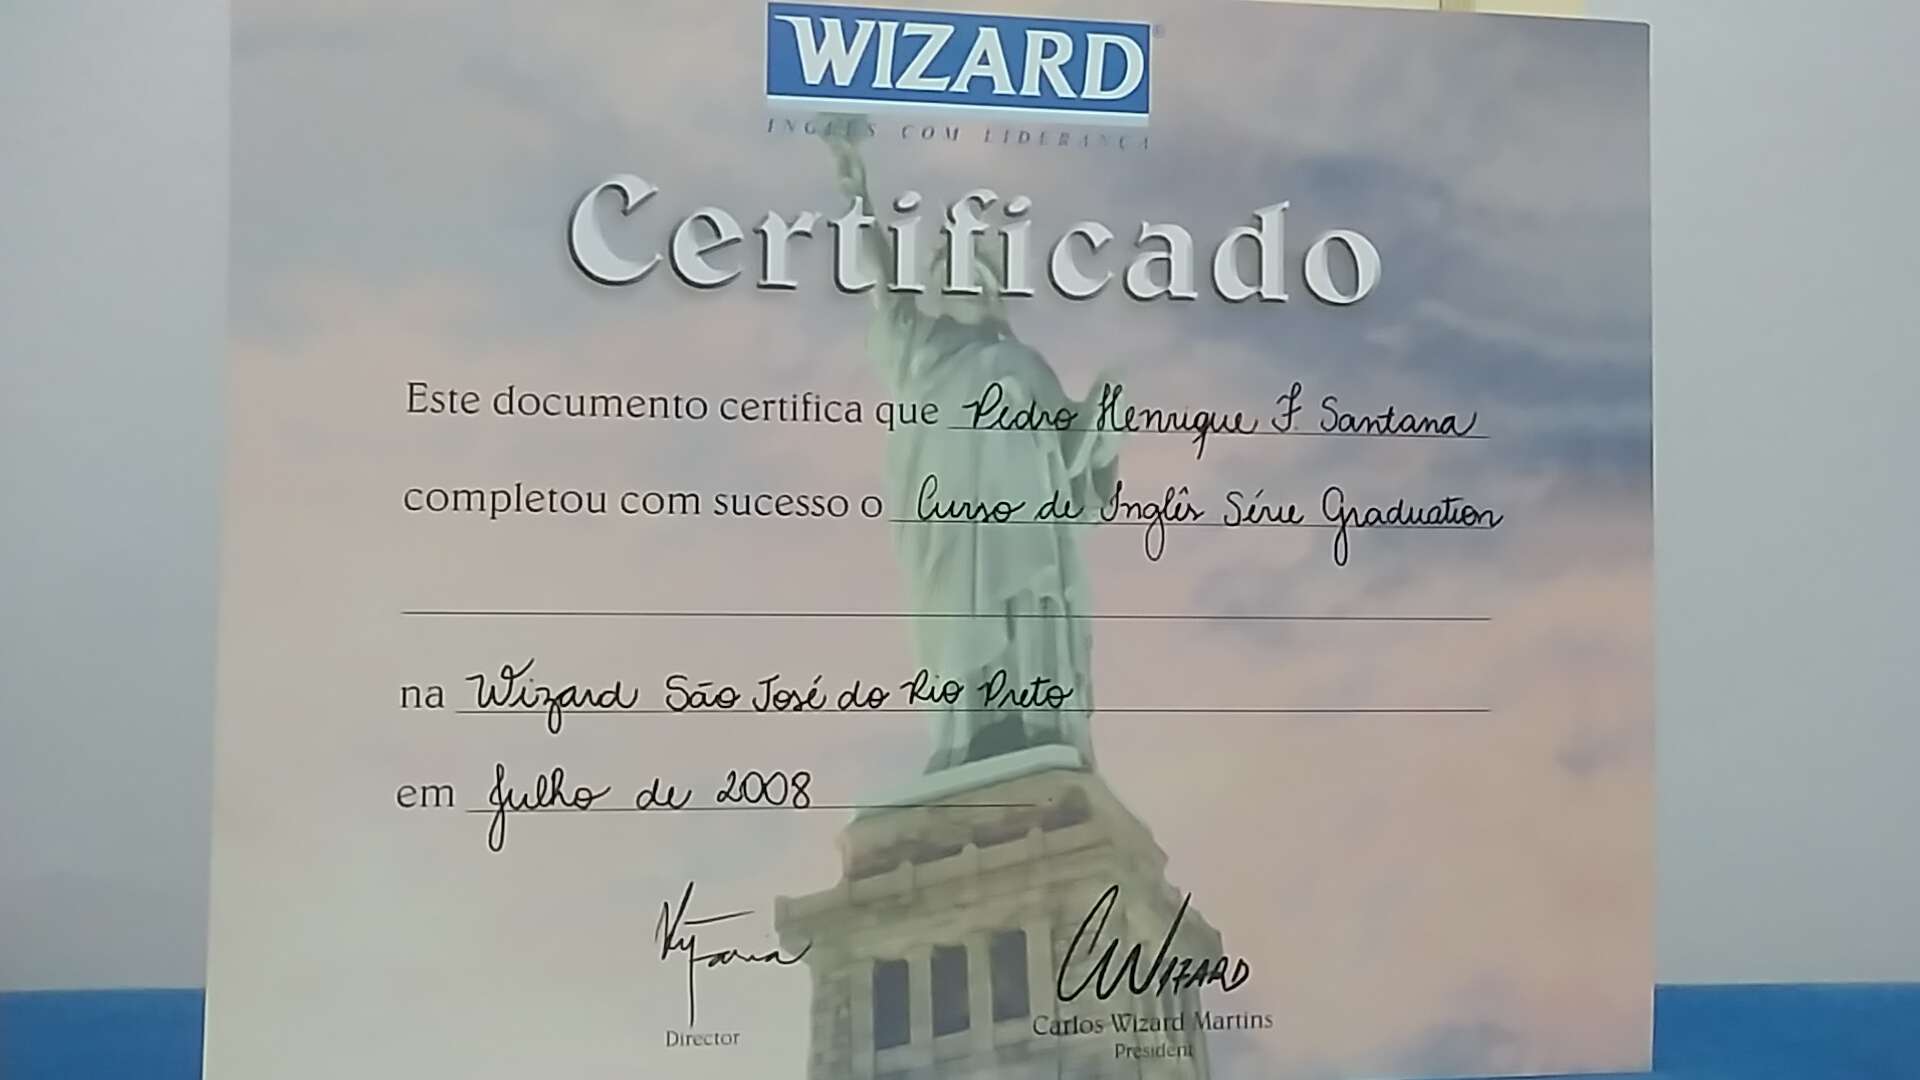 WIZARD
INGLÊS COM LIDERANÇA
Certificado
Este documento certifica que Pedro Henrique F. Santana
completou com sucesso o Curso de Inglês Série Graduation
na Wizard São José do Rio Preto
em Julho de 2008
CWIZARD
Director
Carlos Wizard Martins
President